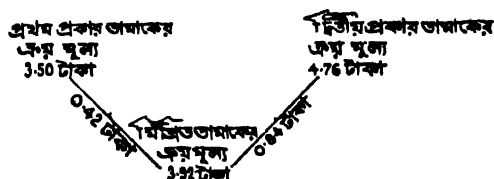 প্রথম প্রকার তামাকের
ক্রয় মূল্য
3.50 টাকা
দ্বিতীয় প্রকার তামাকের
ক্রয় মূল্য
4.76 টাকা
0.42 টাকা
0.84 টাকা
মিশ্রিত তামাকের
ক্রয় মূল্য
3.92 টাকা